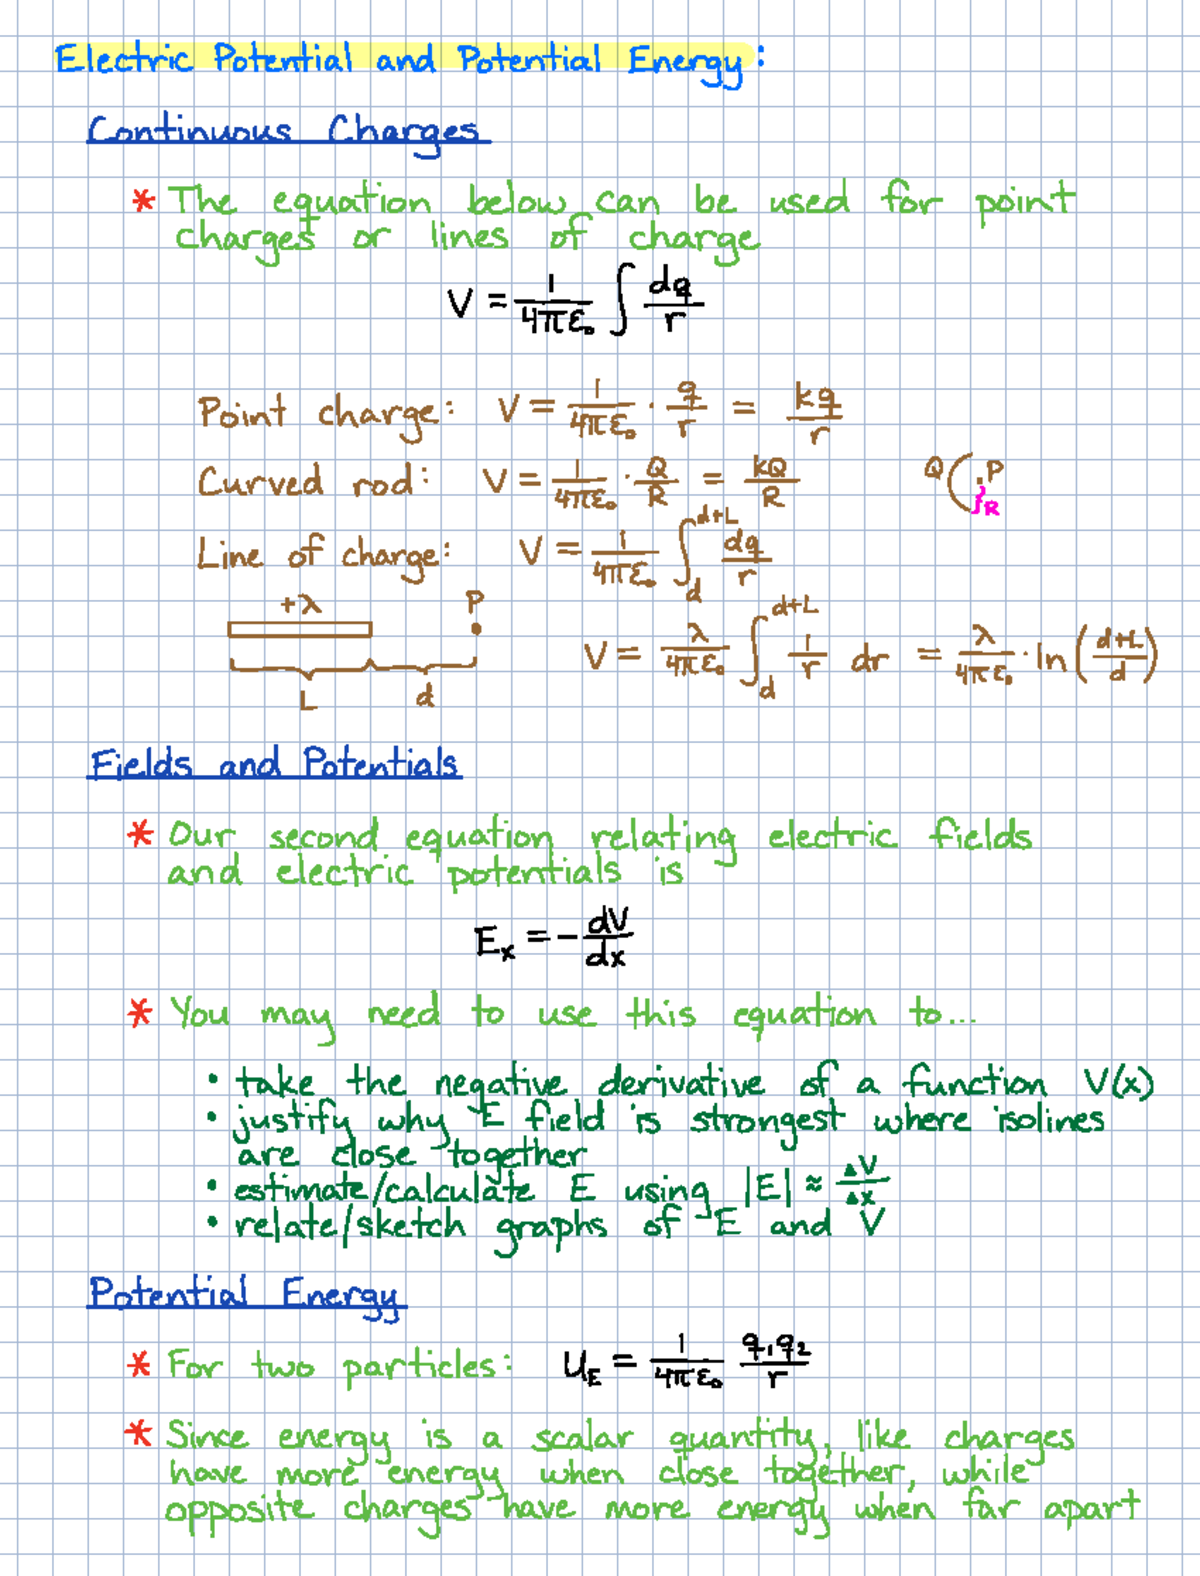 Electric Potential and Potential Energy:
Continuous Charges
* The equation below can be used for point
charges or lines of charge
V = 1/4πε₀ ∫ dq/r
Point charge: V = 1/4πε₀ · q/r = kq/r
Curved rod: V = 1/4πε₀ · Q/R = kQ/R
Q .P
R
Line of charge: V = 1/4πε₀ ∫_d^{d+L} dq/r
+λ P
L d
V = λ/4πε₀ ∫_d^{d+L} 1/r dr = λ/4πε₀ · ln((d+L)/d)
Fields and Potentials
* Our second equation relating electric fields
and electric potentials is
Eₓ = - dV/dx
* You may need to use this equation to...
• take the negative derivative of a function V(x)
• justify why E field is strongest where isolines
are close together
• estimate/calculate E using |E| ≈ ΔV/Δx
• relate/sketch graphs of E and V
Potential Energy
* For two particles: U_E = 1/4πε₀ q₁q₂/r
* Since energy is a scalar quantity, like charges
have more energy when close together, while
opposite charges have more energy when far apart